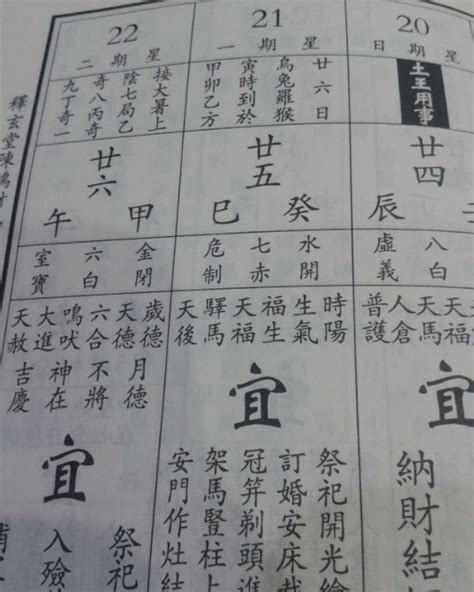 20
星期日
土王用事
廿四
辰
八白
虛義
天馬
人倉
普護
宜
納財結
21
星期一
廿六日
烏兔羅猴
寅時到於
甲卯乙方
廿五
癸巳
水開
七赤
危制
時陽
生氣
福生
天福
驛馬
天後
宜
祭祀開光繪
訂婚安床裁
冠笄剃頭進
架馬豎柱上
安門作灶結
22
星期二
接大暑上
陰七局乙
奇八丙奇
九丁奇一
廿六
甲午
金閉
六白
室寶
歲德
天德
六合
鳴吠
大進
天赦
月德
不將
神在
吉慶
宜
祭祀
入殮
釋玄堂陳鴻